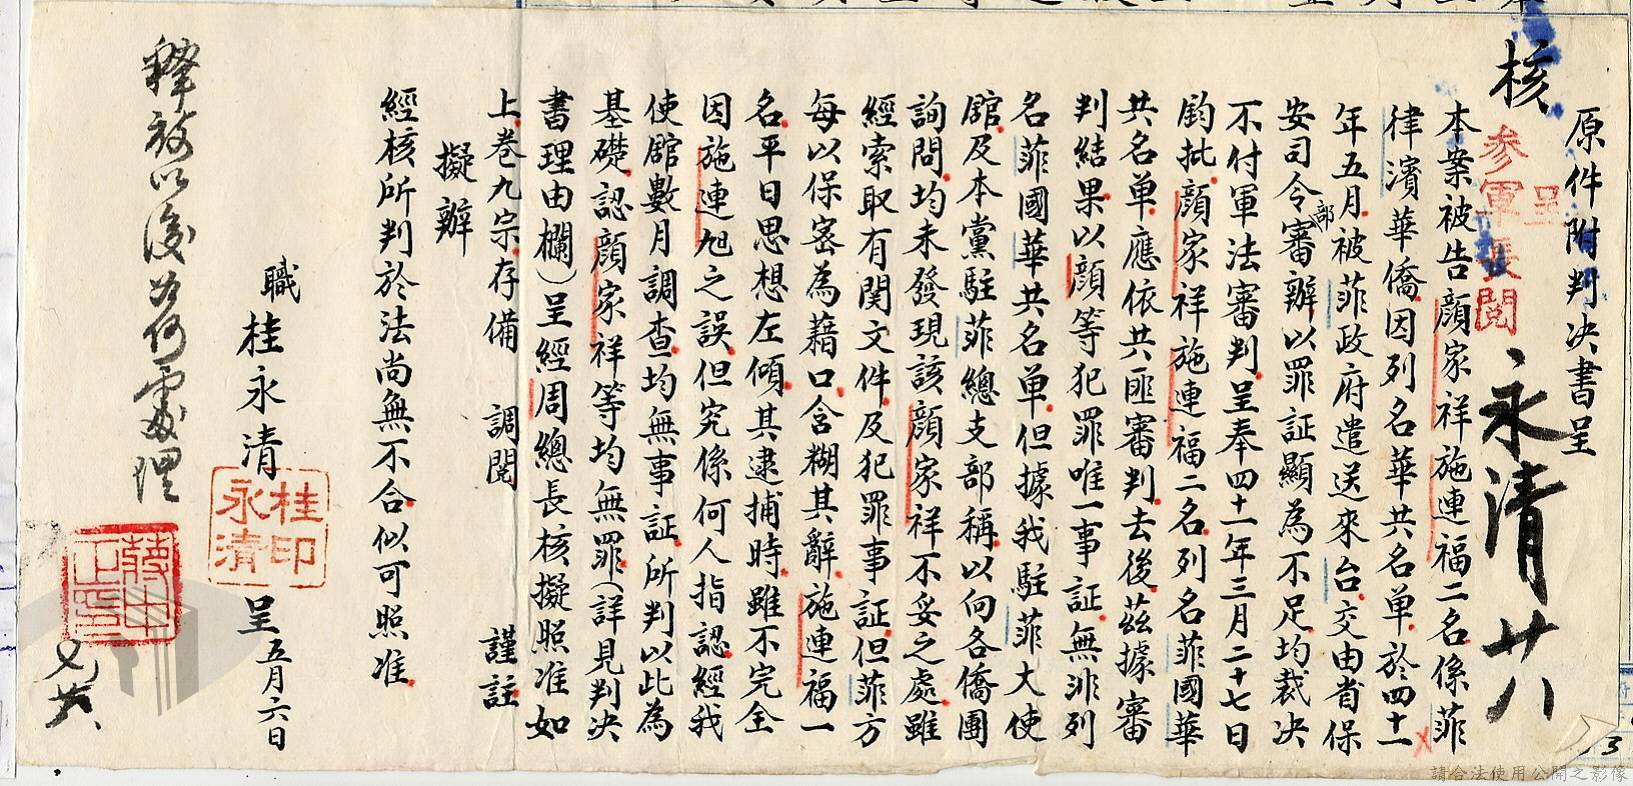 原件附判决書呈
核
參軍長閱
呈
永清
廿八
本案被告顏家祥施連福二名係菲
律濱華僑因列名華共名單於四十一
年五月被菲政府遣送來台交由省保
安司令部審辦以罪証顯為不足均裁决
不付軍法審判呈奉四十一年三月二十七日
鈞批顏家祥施連福二名列名菲國華
共名單應依共匪審判去後茲據審
判結果以顏等犯罪唯一事証無非列
名菲國華共名單但據我駐菲大使
館及本黨駐菲總支部稱以向各僑團
詢問均未發現該顏家祥不妥之處雖
經索取有関文件及犯罪事証但菲方
每以保密為藉口含糊其辭施連福一
名平日思想左傾其逮捕時雖不完全
因施連旭之誤但究係何人指認經我
使館數月調查均無事証所判以此為
基礎認顏家祥等均無罪(詳見判决
書理由欄)呈經周總長核擬照准如
上卷九宗存備 調閱 謹註
擬辦
經核所判於法尚無不合似可照准
職桂永清呈五月六日
桂永清印
釋放以後為何處理
蔣中正印